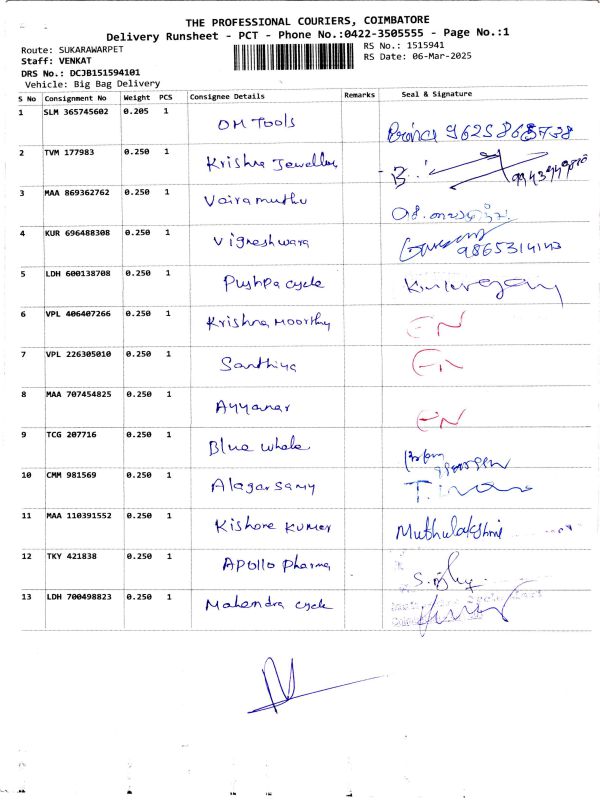 THE PROFESSIONAL COURIERS, COIMBATORE
Delivery Runsheet - PCT - Phone No.:0422-3505555 - Page No.:1
Route: SUKARAWARPET
RS No.: 1515941
Staff: VENKAT
RS Date: 06-Mar-2025
DRS No.: DCJB151594101
Vehicle: Big Bag Delivery
S No Consignment No Weight PCS Consignee Details Remarks Seal & Signature
1 SLM 365745602 0.205 1 OM Tools
2 TVM 177983 0.250 1 Krishna Jewellery
3 MAA 869362762 0.250 1 Vairamuthu
4 KUR 696488308 0.250 1 Vigneshwara 9865314143
5 LDH 600138708 0.250 1 Pushpa cycle
6 VPL 406407266 0.250 1 Krishna Moorthy EN
7 VPL 226305010 0.250 1 Santhiya EN
8 MAA 707454825 0.250 1 Ayyanar EN
9 TCG 207716 0.250 1 Blue whale
10 CMM 981569 0.250 1 Alagarsamy
11 MAA 110391552 0.250 1 Kishore Kumar Muthulakshmi
12 TKY 421838 0.250 1 Apollo Pharma
13 LDH 700498823 0.250 1 Mahendra cycle